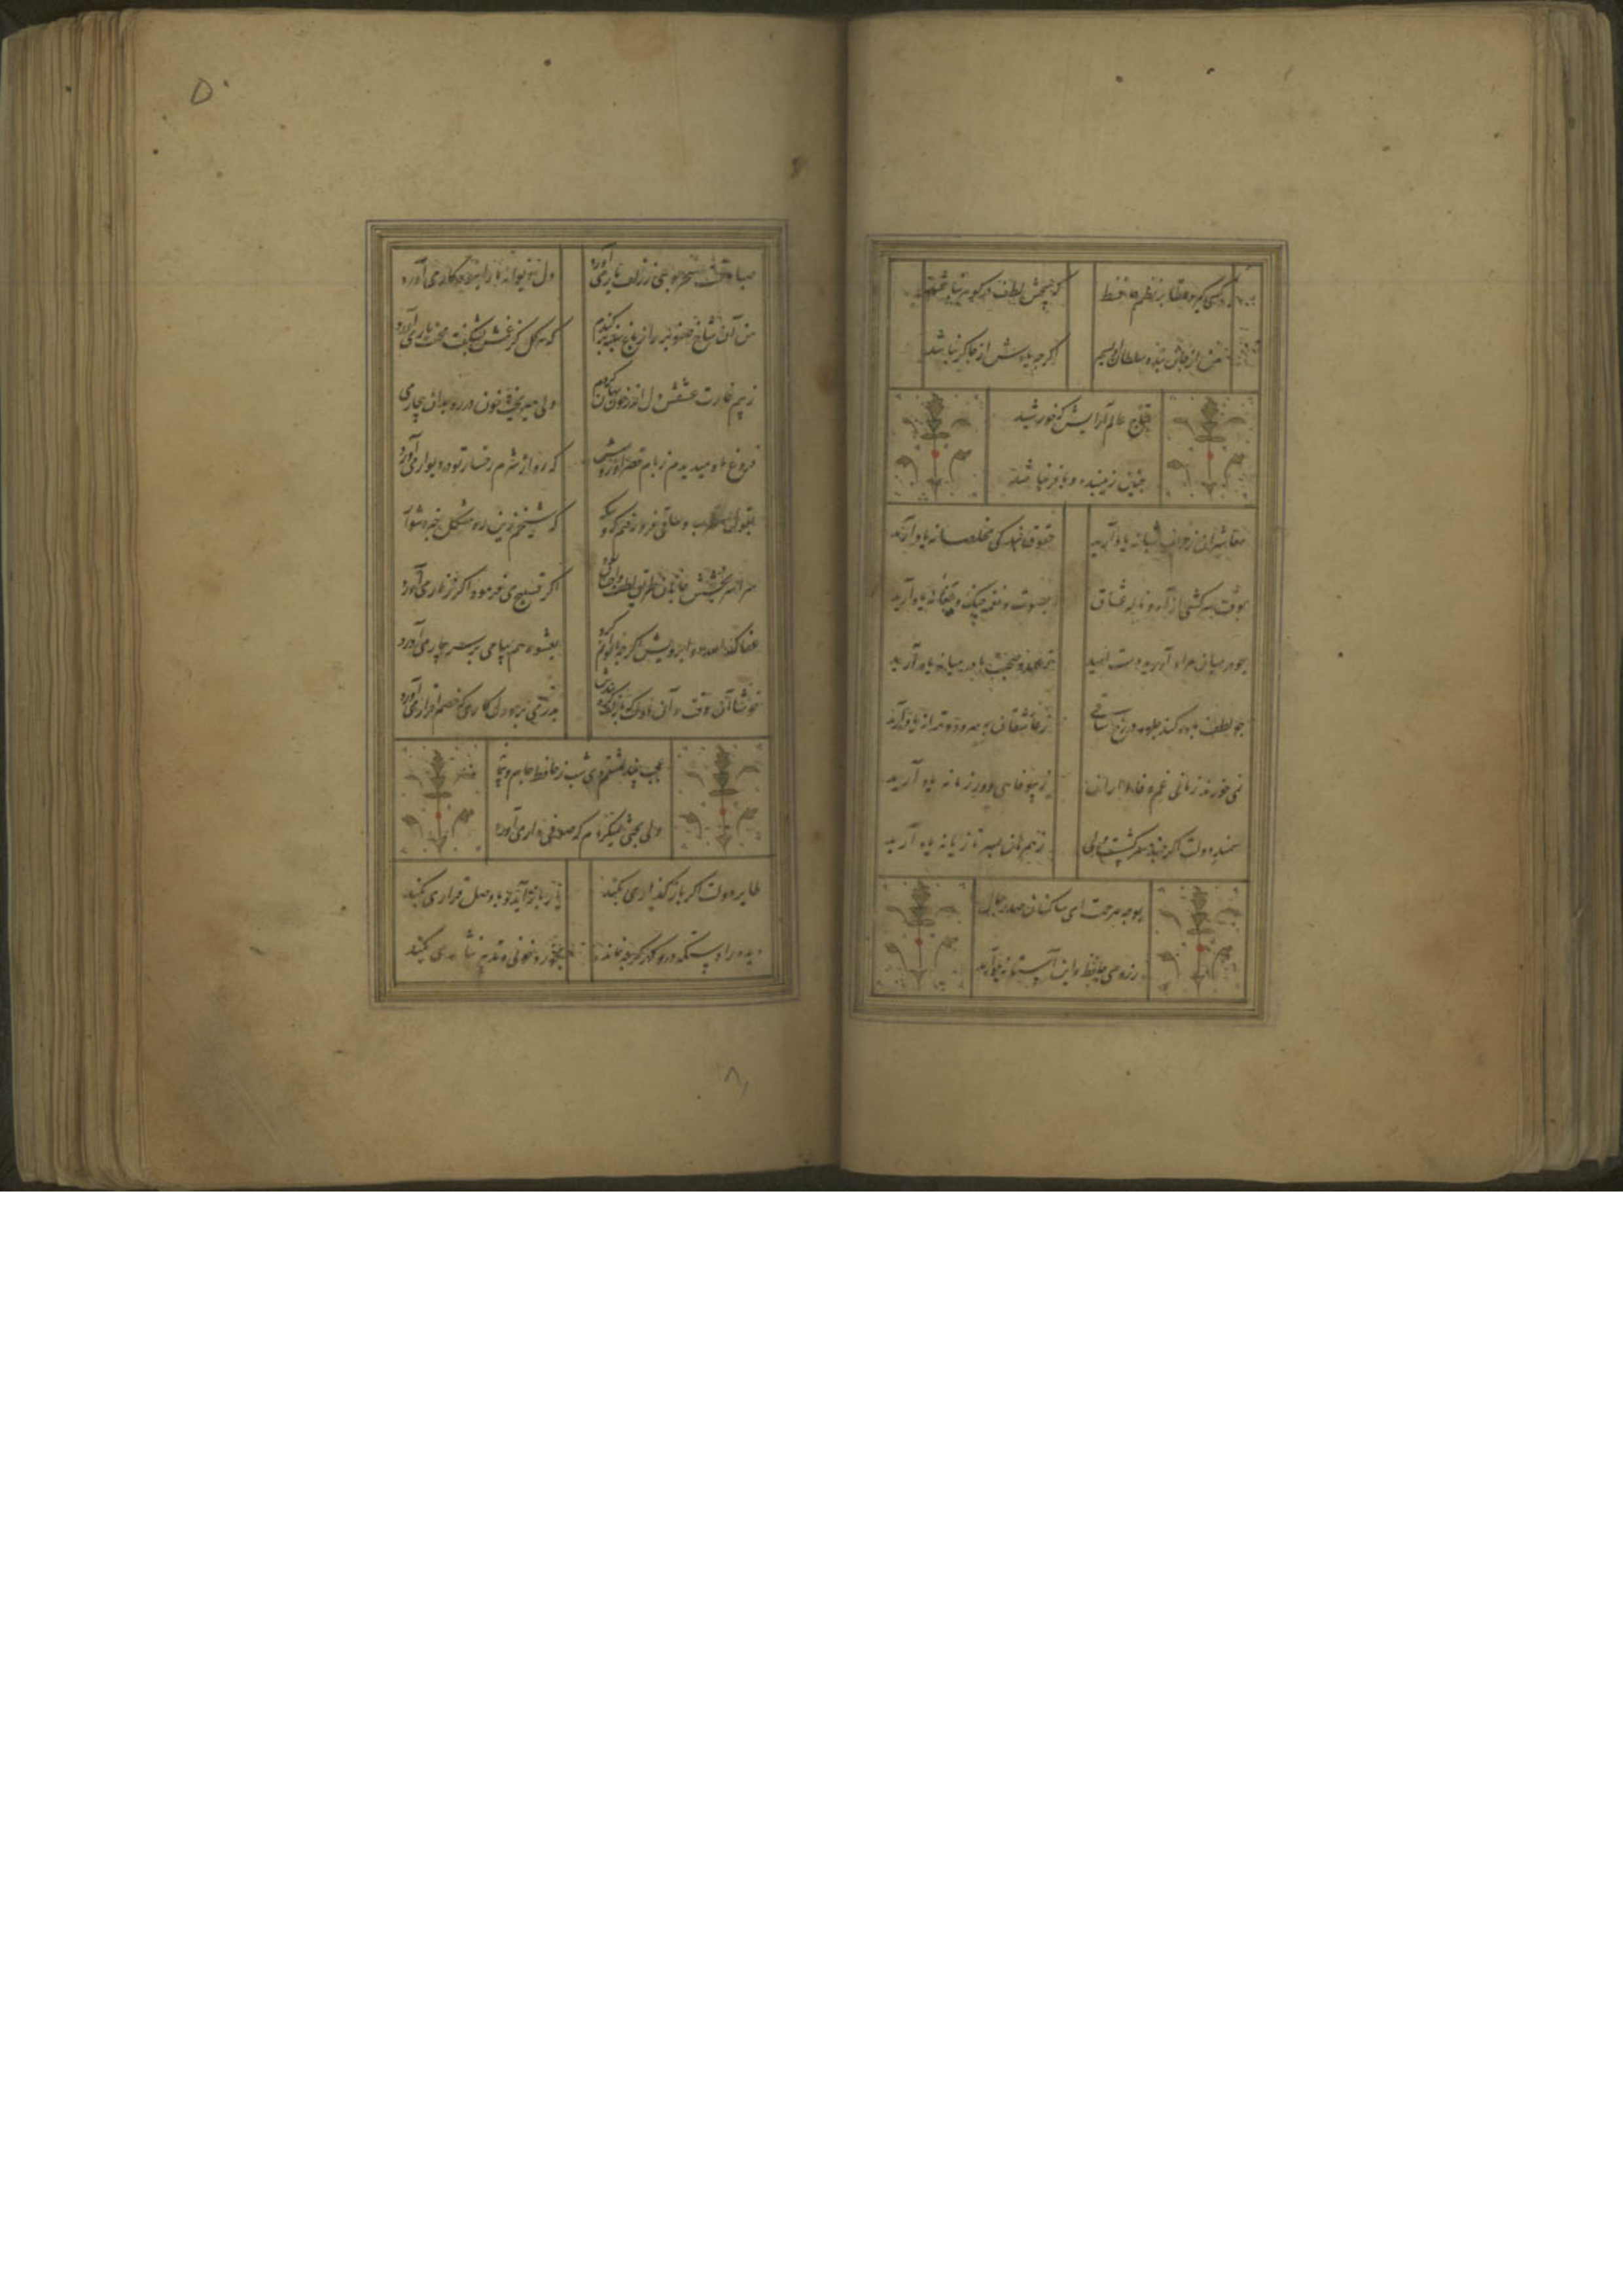 کسی گیرد خطا بر نظم حافظ که هیچش لطف در گوهر نباشد
من از جان بنده سلطان اویسم اگرچه یادش از چاکر نباشد
بتاج عالم آرایش که خورشید
چنین زیبنده و افسر نباشد
معاشران ز حریف شبانه یاد آرید حقوق بندگی مخلصانه یاد آرید
بوقت سرخوشی از آه و ناله عشاق بصوت و نغمه چنک و چغانه یاد آرید
چو در میان مراد آورید دست امید ز عهد صحبت ما در میانه یاد آرید
چو لطف باده کند جلوه در رخ ساقی ز عاشقان بسرود و ترانه یاد آرید
نمی خورند زمانی غم وفاداران ز بیوفایی دور زمانه یاد آرید
سمند دولت اگر چند سرکش است ولی ز همرهان بسر تازیانه یاد آرید
بوجه مرحمت ای ساکنان صدر جلال
ز روی حافظ و این آستانه یاد آرید
۵۰
صبا وقت سحر بویی ز زلف یار می آورد دل دیوانه ما را بنو در کار می آورد
من آن شاخ صنوبر را ز باغ سینه برکندم که هر گل کز غمش بشکفت محنت بار می آورد
ز بیم غارت عشقش دل پرخون رها کردم ولی میریخت خون در ره بدان هنجار می
فروغ ماه میدیدم ز بام قصر او روشن که رو از شرم رخسار تو در دیوار می آورد
بقول مطرب و ساقی برون رفتم که و بیگه کز
سراسر بخشش جانان طریق لطف و احسان بود اگر تسبیح می فرمود اگر زنار می آورد
عفا الله چین ابرویش اگرچه ناتوانم کرد بعشوه هم پیامی بر سر بیمار می آورد
خوشا آن وقت و آن ساعت که
عجب میداشتم دی شب ز حافظ جام و پیمانه
ولی بحثی نمیکردم که صوفی وار می آورد
طایر دولت اگر باز گذاری بکند یار باز آید و با وصل قراری بکند
دیده را دستگه در و گهر گرچه نماند بخورد خونی و تدبیر نثاری بکند